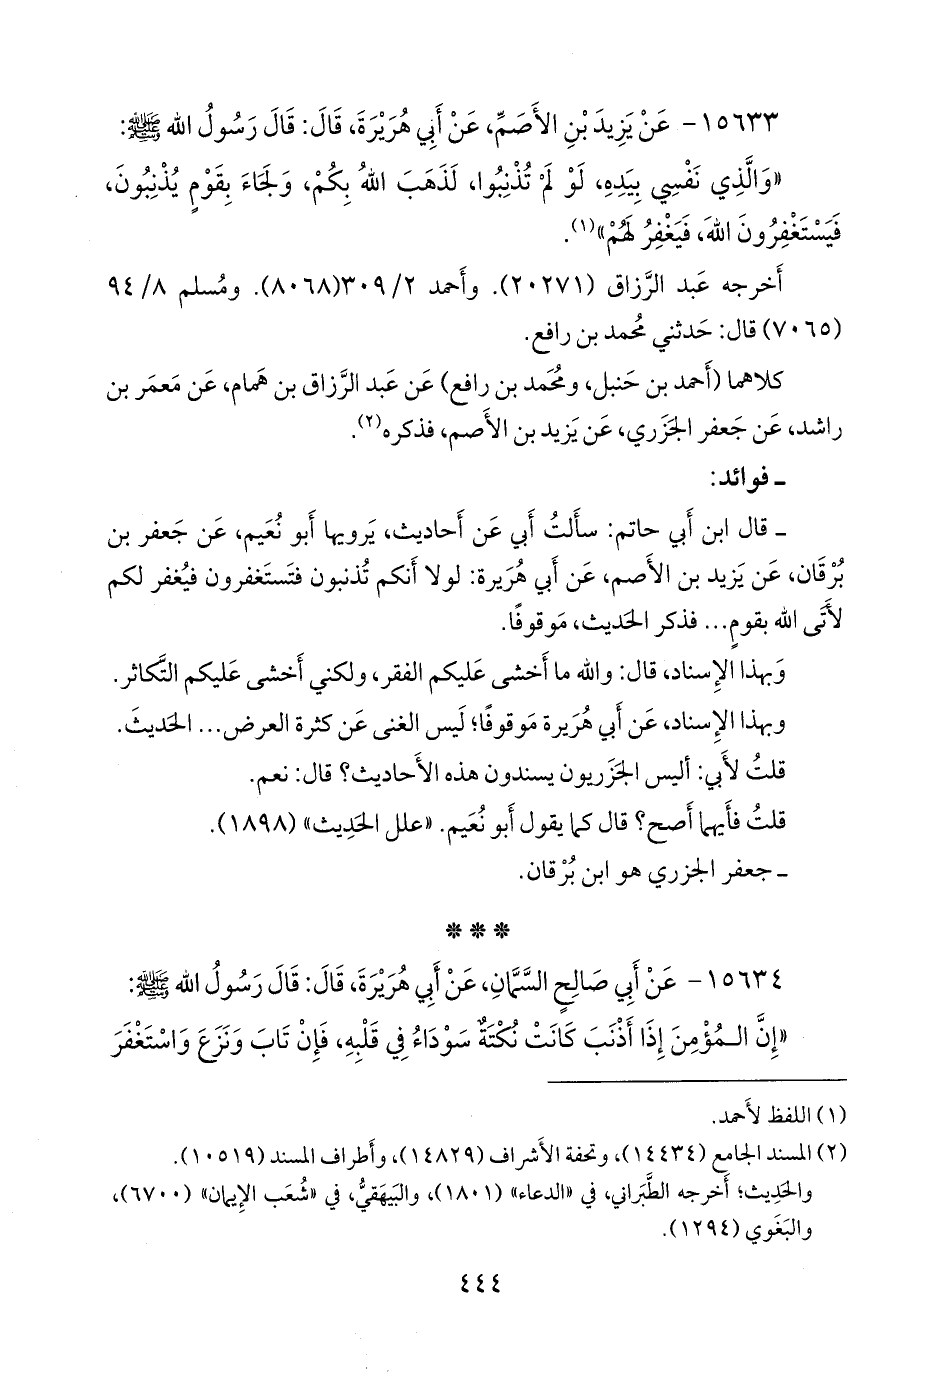 ١٥٦٣٣- عَنْ يَزِيدَ بْنِ الأَصَمِّ، عَنْ أَبِي هُرَيْرَةَ، قَالَ: قَالَ رَسُولُ الله ﷺ:
«وَالَّذِي نَفْسِي بِيَدِهِ، لَوْ لَمْ تُذْنِبُوا، لَذَهَبَ اللهُ بِكُمْ، وَلَجَاءَ بِقَوْمٍ يُذْنِبُونَ،
فَيَسْتَغْفِرُونَ اللهَ، فَيَغْفِرُ لَهُمْ»(١).
أَخرجه عَبد الرَّزاق (٢٠٢٧١). وأَحمد ٢/ ٣٠٩(٨٠٦٨). ومُسلم ٨/ ٩٤
(٧٠٦٥) قال: حَدثني مُحمد بن رافع.
كلاهما (أَحمد بن حَنبل، ومُحَمد بن رافع) عَن عَبد الرَّزاق بن هَمام، عَن مَعمَر بن
راشد، عَن جَعفر الجَزَري، عَن يَزيد بن الأَصم، فذكره(٢).
ـ فوائد:
ـ قال ابن أَبي حاتم: سأَلتُ أَبي عَن أَحاديث، يَرويها أَبو نُعَيم، عَن جَعفر بن
بُرْقان، عَن يَزيد بن الأَصم، عَن أَبي هُرَيرة: لولا أَنكم تُذنبون فتَستَغفرون فيُغفر لكم
لأَتَى الله بقومٍ... فذكر الحَديث، مَوقوفًا.
وَبهذا الإِسناد، قال: والله ما أَخشى عَليكم الفقر، ولكني أَخشى عَليكم التَّكاثر.
وبهذا الإِسناد، عَن أَبي هُرَيرة مَوقوفًا؛ لَيس الغنى عَن كثرة العرض... الحَديثَ.
قلتُ لأَبي: أَليس الجَزَريون يسندون هذه الأَحاديث؟ قال: نعم.
قلتُ فأَيهما أَصح؟ قال كما يقول أَبو نُعَيم. «علل الحَدِيث» (١٨٩٨).
ـ جعفر الجزري هو ابن بُرْقان.
***
١٥٦٣٤- عَنْ أَبِي صَالِحٍ السَّمَّانِ، عَنْ أَبِي هُرَيْرَةَ، قَالَ: قَالَ رَسُولُ الله ﷺ:
«إِنَّ الـمُؤْمِنَ إِذَا أَذْنَبَ كَانَتْ نُكْتَةٌ سَوْدَاءُ فِي قَلْبِهِ، فَإِنْ تَابَ وَنَزَعَ وَاسْتَغْفَرَ
(١) اللفظ لأَحمد.
(٢) المسند الجامع (١٤٤٣٤)، وتحفة الأَشراف (١٤٨٢٩)، وأَطراف المسند (١٠٥١٩).
والحَدِيث؛ أَخرجه الطَّبَراني، في «الدعاء» (١٨٠١)، والبَيهَقيُّ، في «شُعَب الإِيمان» (٦٧٠٠)،
والبَغَوي (١٢٩٤).
٤٤٤